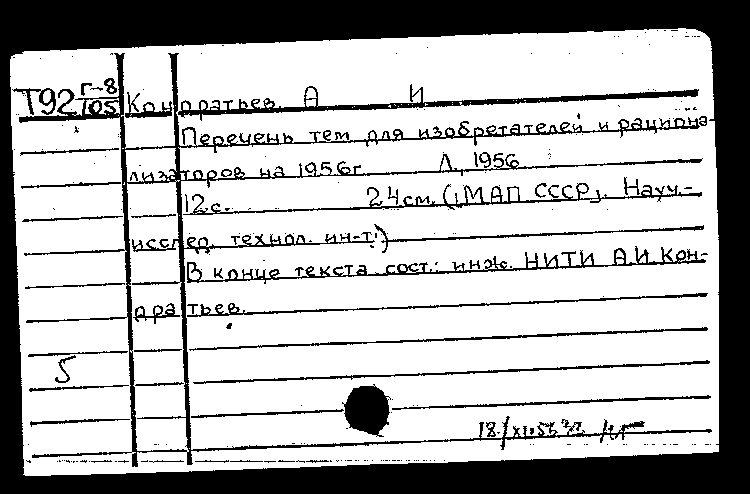 Т92 Г-8/105 Кондратьев А И
Перечень тем для изобретателей и рациона-
лизаторов на 1956г. Л, 1956
12с. 24см. (МАП СССР. Науч.-
исслед. технол. ин-т.)
В конце текста сост.: инж. НИТИ А.И. Кон-
дратьев.
5
18/XI.56